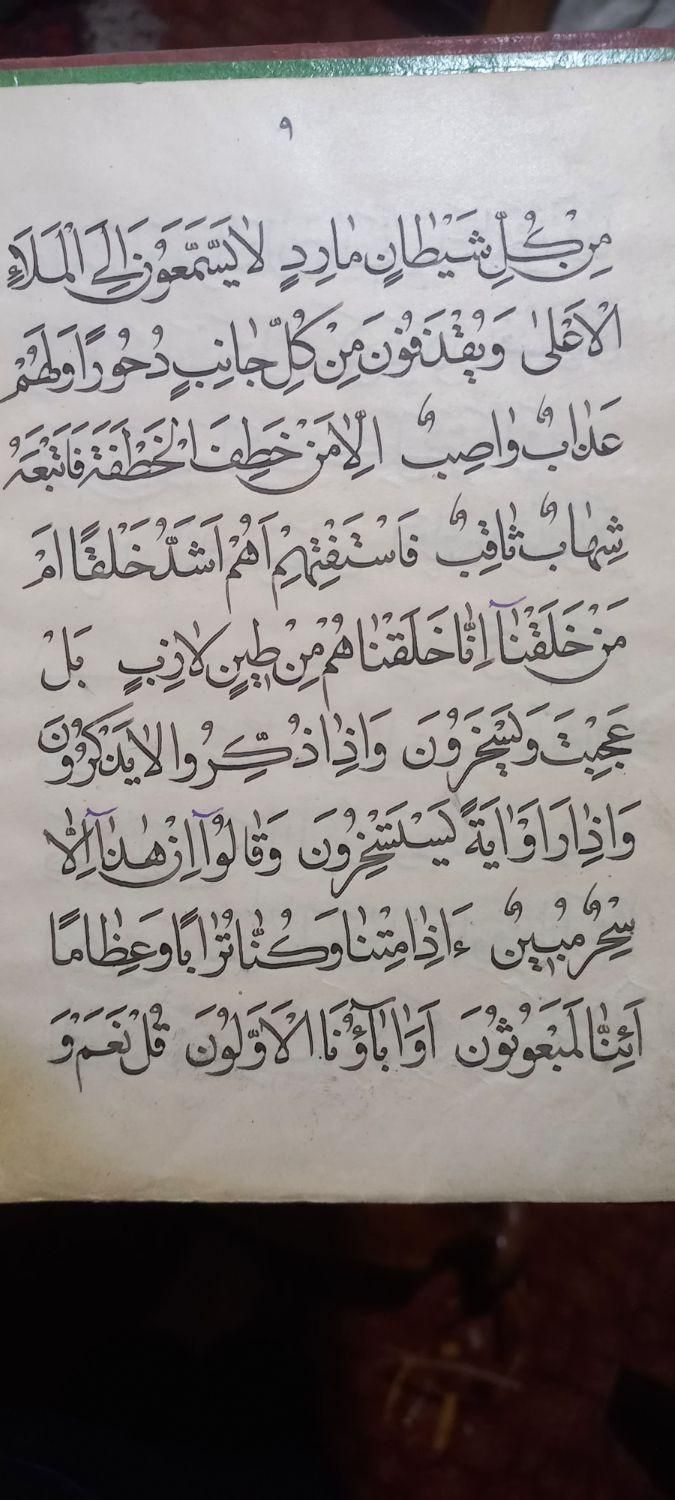 ٩
مِنْ كُلِّ شَيْطَانٍ مَارِدٍ لَا يَسَّمَّعَوُنَ اِلَى الْمَلَاءِ
الْاَعْلٰى وَيُقْذَفُونَ مِنْ كُلِّ جَانِبٍ دُحُورًا وَلَهُمْ
عَذَابٌ وَاصِبٌ اِلَّا مَنْ خَطِفَ الْخَطْفَةَ فَاَتْبَعَهُ
شِهَابٌ ثَاقِبٌ فَاسْتَفْتِهِمْ اَهُمْ اَشَدُّ خَلْقًا اَمْ
مَنْ خَلَقْنَآ اِنَّا خَلَقْنَاهُمْ مِنْ طِينٍ لَازِبٍ بَلْ
عَجِبْتَ وَيَسْخَرُونَ وَاِذَا ذُكِّرُوا لَا يَذْكُرُونَ
وَاِذَا رَاَوْا اٰيَةً يَسْتَسْخِرُونَ وَقَالُوٓا اِنْ هٰذَآ اِلَّا
سِحْرٌ مُبِينٌ ءَاِذَا مِتْنَا وَكُنَّا تُرَابًا وَعِظَامًا
اَئِنَّا لَمَبْعُوثُونَ اَوَاٰبَآؤُنَا الْاَوَّلُونَ قُلْ نَعَمْ وَ